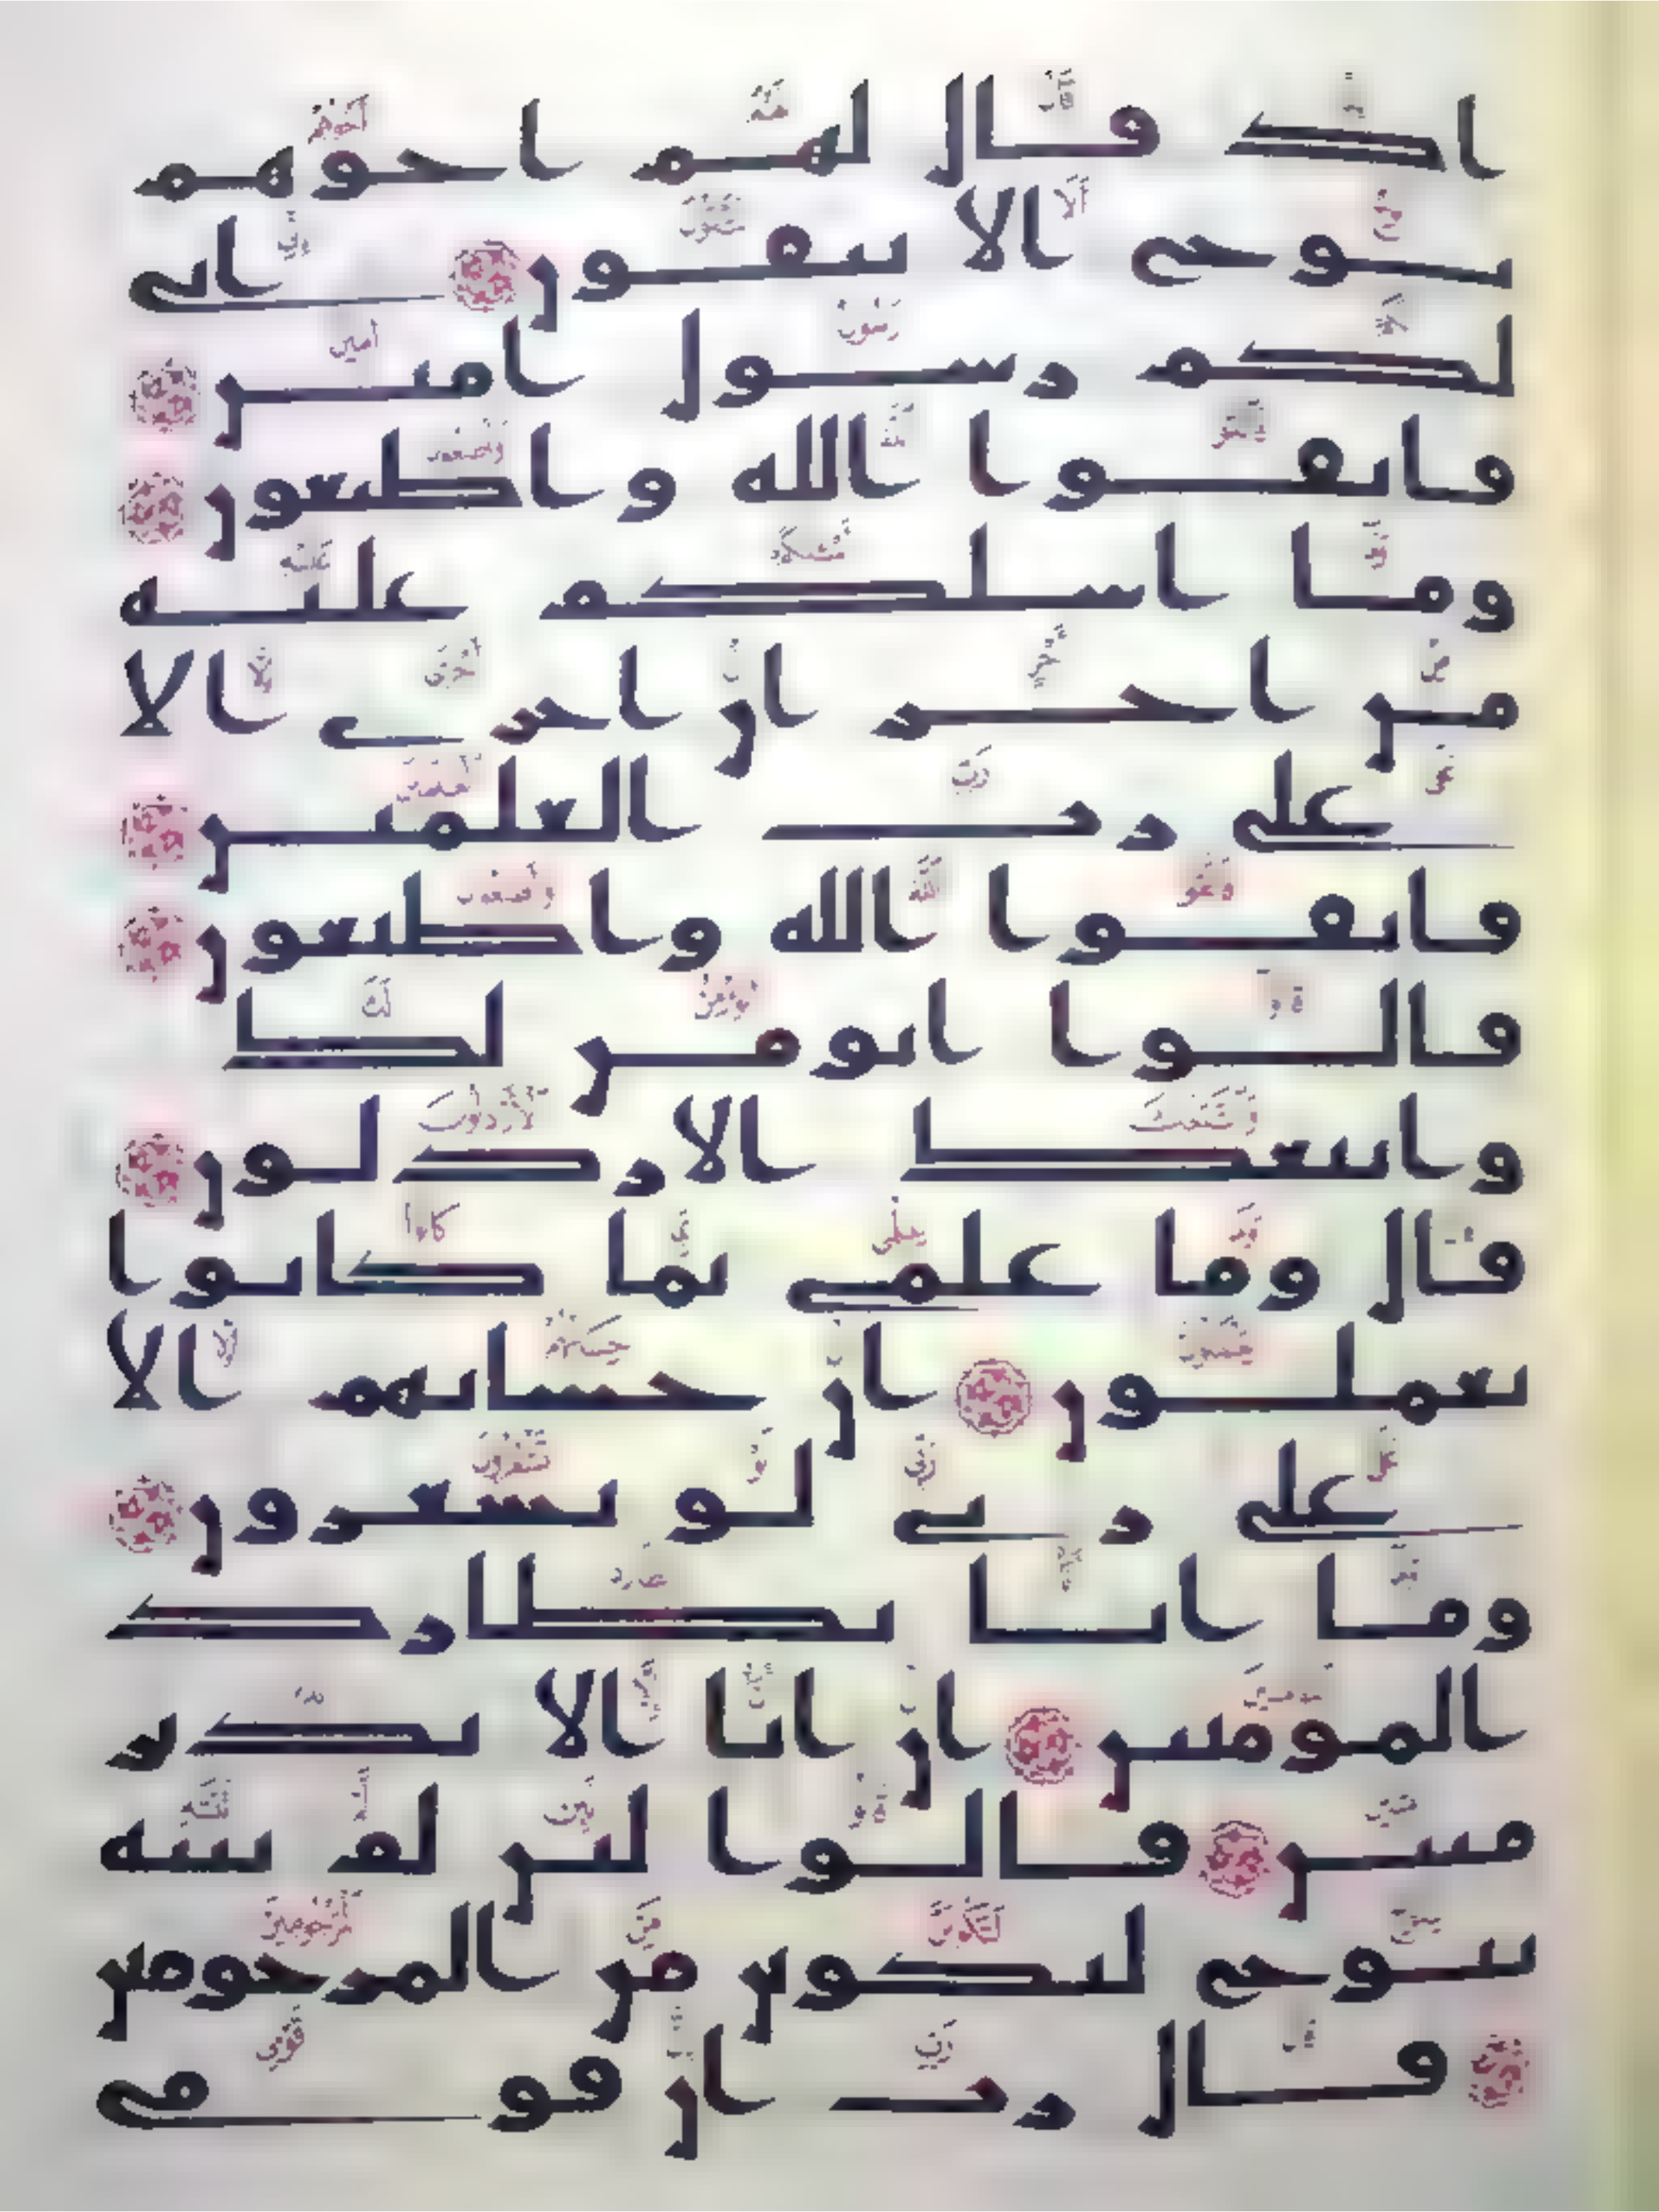 اذ قال لهم اخوهم
نوح الا تتقون انى
لكم رسول امين
فاتقوا الله واطيعون
وما اسلكم عليه
من اجر ان اجرى الا
على رب العلمين
فاتقوا الله واطيعون
قالوا انومن لك
واتبعك الارذلون
قال وما علمى بما كانوا
يعملون ان حسابهم الا
على ربى لو تشعرون
وما انا بطارد
المومنين ان انا الا نذير
مبين قالوا لين لم تنته
ينوح لتكونن من المرجومين
قال رب ان قومى